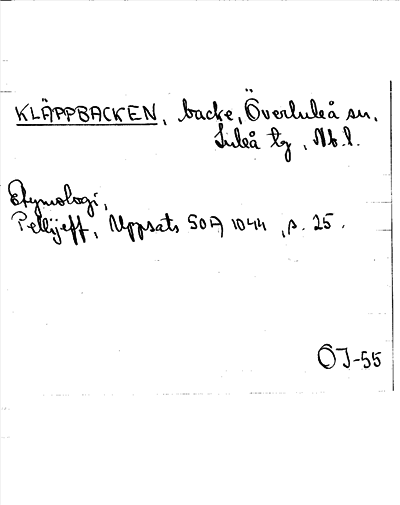 KLÄPPBACKEN, backe, Överluleå sn,
Luleå tg, Nb. l.
Etymologi,
Pellijeff, Uppsats SOA 1044, s. 25.
OJ-55